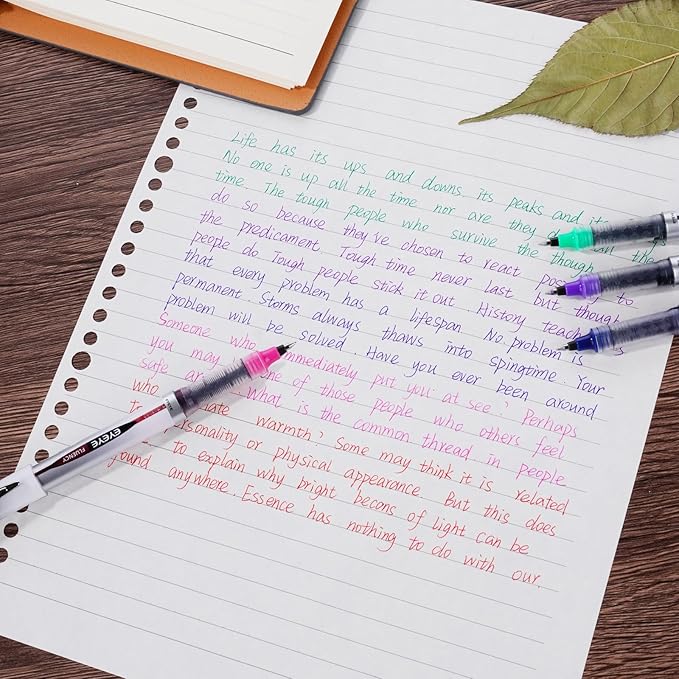 Life has its ups and downs its peaks and its
No one is up all the time nor are they down all the
time. The tough people who survive the though
do so because they've chosen to react to
the predicament. Tough time never last but though
people do. Tough people stick it out. History
that every problem has a lifespan. No problem is
permanent. Storms always thaws into spingtime. Your
problem will be solved. Have you ever been around
Someone who immediately put you at see? Perhaps
you may one of those people who others feel
safe What is the common thread in people
who warmth? Some may think it is related
personality or physical appearance. But this does
to explain why bright becons of light can be
found anywhere. Essence has nothing to do with our
EYEYE
FLUENCY